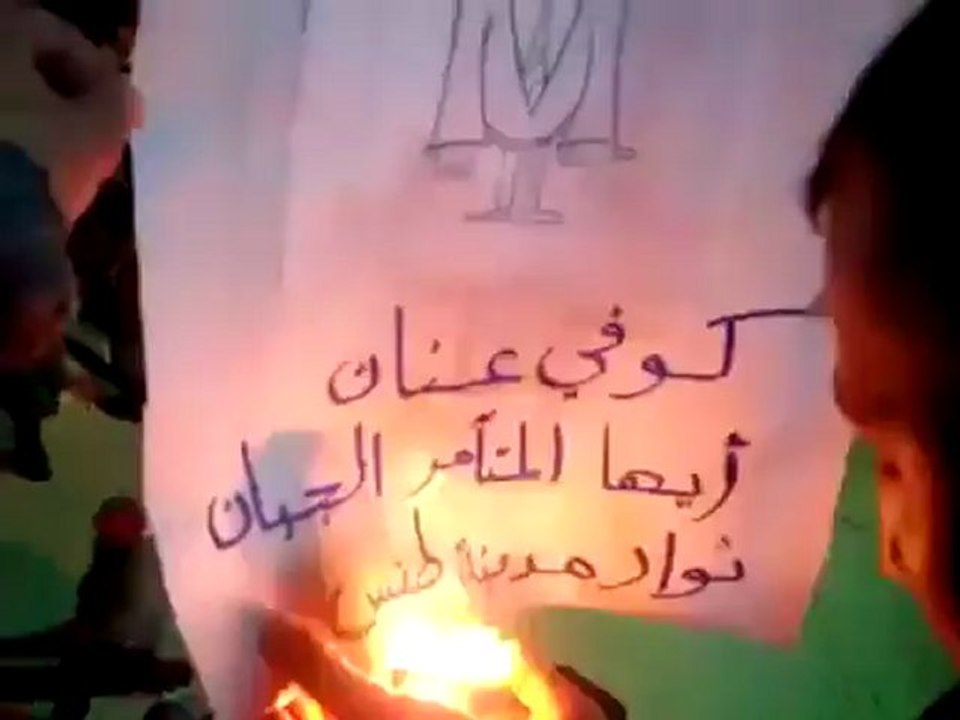 كوفي عنان
أيها المتأمر الجبان
ثوار مدينة طفس